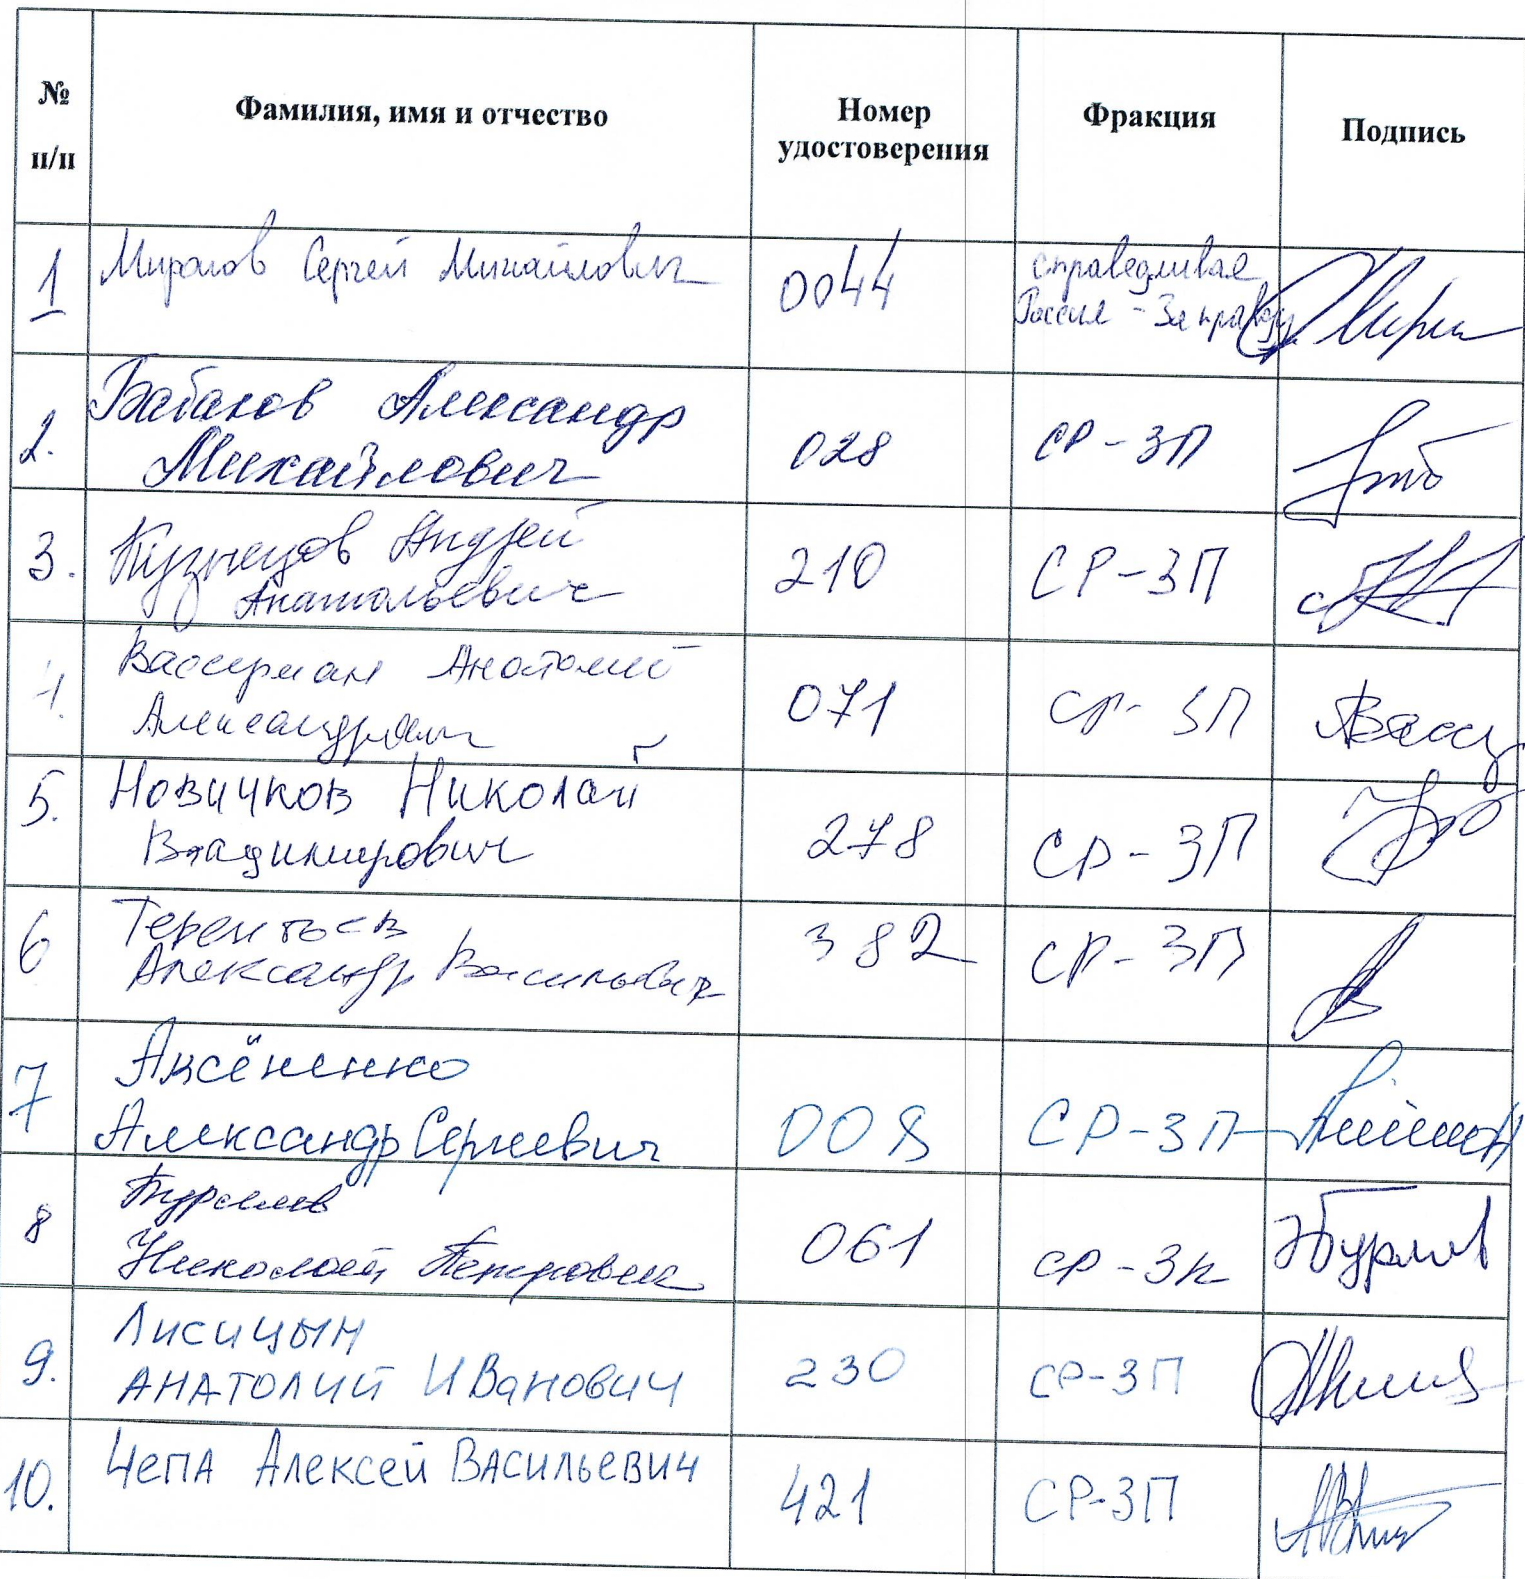 № п/п Фамилия, имя и отчество Номер удостоверения Фракция Подпись
1 Миронов Сергей Михайлович 0044 Справедливая
Россия - За правду
2. Бабаков Александр
Михайлович 028 СР-ЗП
3. Кузнецов Андрей
Анатольевич 210 СР-ЗП
4. Вассерман Анатолий
Александрович 071 СР-ЗП
5. Новичков Николай
Владимирович 278 СР-ЗП
6 Терентьев
Александр Васильевич 382 СР-ЗП
7 Аксёненко
Александр Сергеевич 008 СР-ЗП
8 Бурляев
Николай Петрович 061 СР-ЗП
9. Лисицын
Анатолий Иванович 230 СР-ЗП
10. Чепа Алексей Васильевич 421 СР-ЗП